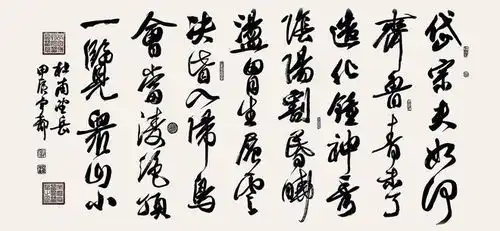 岱宗夫如何
齊魯青未了
造化鍾神秀
陰陽割昏曉
盪胸生層雲
決眥入歸鳥
會當凌絕頂
一覽衆山小
杜甫望岳
甲辰